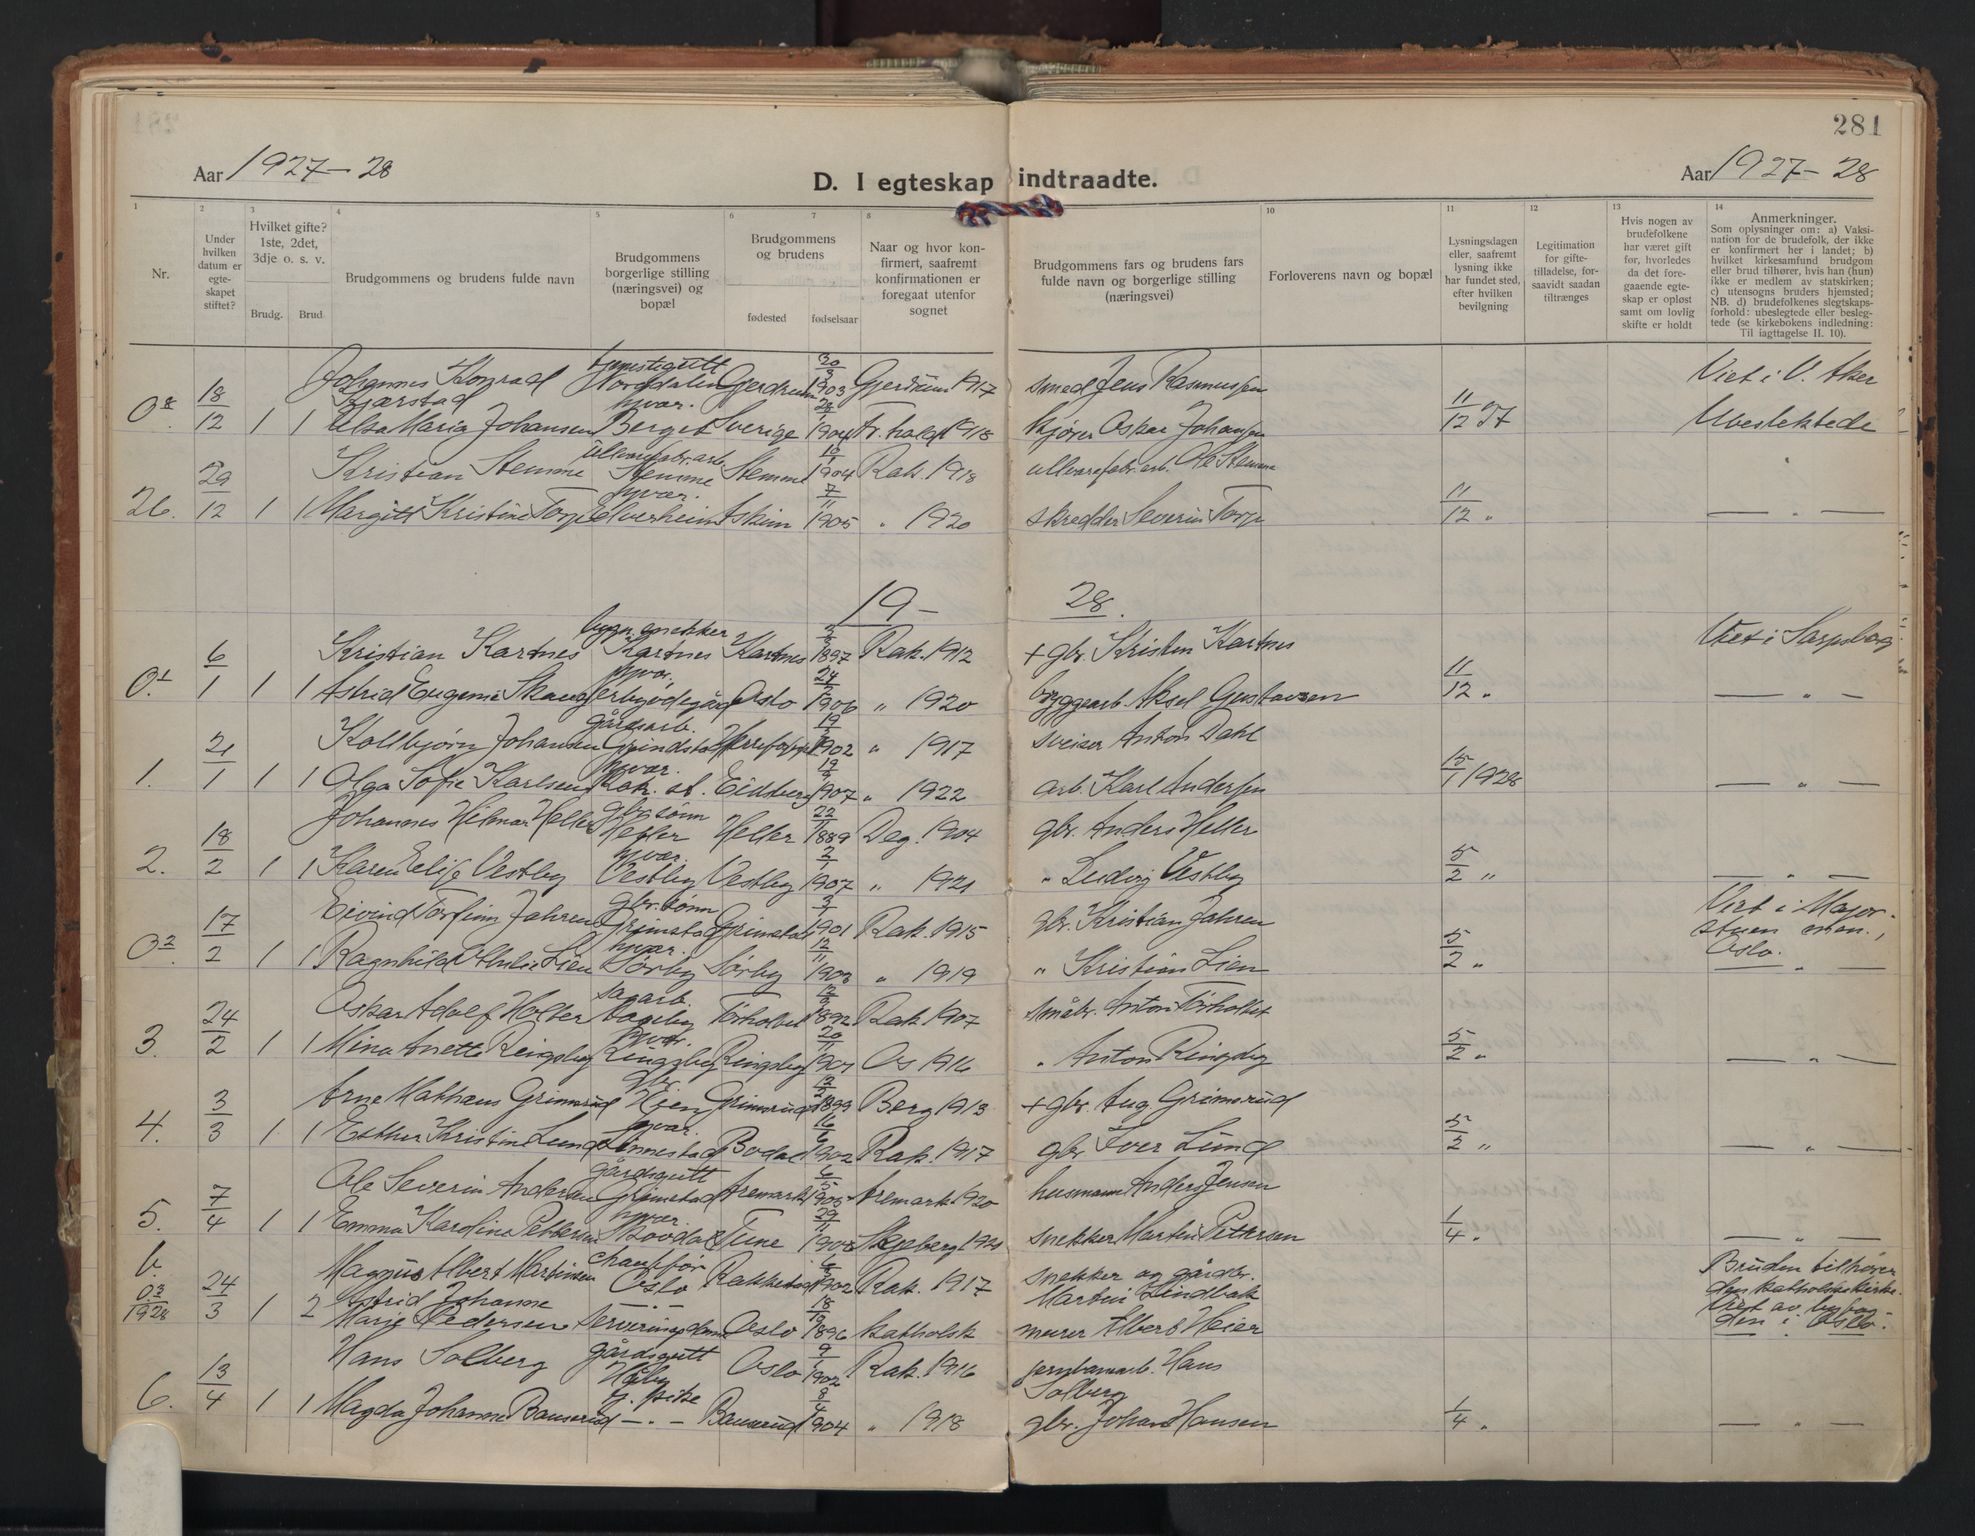 281
Aar 1927-28
D. I egteskap indtraadte.
Aar 1927-28
1
2
3
4
5
6
7
8
10
11
12
13
14
Nr.
Under hvilken datum er egte-skapet stiftet?
Hvilket gifte? 1ste, 2det, 3dje o. s. v.
Brudg.
Brud
Brudgommens og brudens fulde navn
Brudgommens borgerlige stilling (næringsvei) og bopæl
Brudgommens og brudens
fødested
fødselsaar
Naar og hvor kon-firmert, saafremt konfirmationen er foregaat utenfor sognet
Brudgommens fars og brudens fars fulde navn og borgerlige stilling (næringsvei)
Forloverens navn og bopæl
Lysningsdagen eller, saafremt lysning ikke har fundet sted, efter hvilken bevilgning
Legitimation for gifte-tilladelse, for-saavidt saadan tiltrænges
Hvis nogen av brudefolkene har været gift før, hvorledes da det fore-gaaende egte-skap er opløst samt om lovlig skifte er holdt
Anmerkninger.
Som oplysninger om: a) Vaksi-nation for de brudefolk, der ikke er konfirmert her i landet; b) hvilket kirkesamfund brudgom eller brud tilhører, hvis han (hun) ikke er medlem av statskirken; c) utensogns bruders hjemsted; NB. d) brudefolkenes slegtskaps-forhold: ubeslegtede eller besleg-tede (se kirkebokens indledning: Til iagttagelse II. 10).
O8 18/12 Johannes Konrad Kjærstad tjenestegutt Norddalen Gjerdrum 1903 Gjerdrum 1917 smed Jens Rasmussen Viet i V. Aker
1 1 Elsa Maria Johansen hjvær. Berget Sverige 1904 Fr.hald 1918 kjører Oskar Johansen 11/12 27 Ubeslektede
29/12 Kristian Stemme ullvarefabr.arb. Stemme Stemme 1904 Rak. 1918 ullvarefabr.arb. Ole Stemme
26. 1 1 Margitt Kristine Torp hjvær. Elverheim Askim 7/11 1905 " 1920 skredder Severin Torp 11/12 " — " —
19-28.
O1 6/1 Kristian Kartnes bygn.snekker Kartnes Kartnes 1897 Rak. 1912 + gbr. Kristen Kartnes Viet i Sarpsborg
1 1 Astrid Eugenie Skaug hjvær. Oslo 1906 " 1920 byggearb. Aksel Gustavsen 11/12 " — " —
21/1 Kollbjørn Johansen gårdsarb. Grindstad 1902 " 1917 sveiser Anton Dahl
1. 1 1 Olga Sofie Karlsen hjvær. Rak. st. Eidsberg 1907 " 1922 arb. Karl Andersen 15/1 1928 — " —
18/2 Johannes Hilmar Heller gbr. sønn Heller Heller 1889 Deg. 1904 gbr. Anders Heller
2. 1 1 Karen Elise Vestby hjvær. Vestby Vestby 1907 " 1921 " Ludvig Vestby 5/2 " — " —
O2 17/2 Eivind Torfinn Jahren gbr. sønn Grimstad Grimstad 1901 Rak. 1915 gbr. Kristian Jahren Viet i Major-stuen men., Oslo.
1 1 Ragnhild Othilie Lien hjvær. Sørby Sørby 12/11 1903 " 1919 " Kristian Lien 5/2 " — " —
24/2 Oskar Adolf Holter sagarb. Torholtet 1892 Rak. 1907 småbr. Anton Torholtet
3. 1 1 Mina Anette Ringsby hjvær. Ringsby Ringsby 1901 Os 1916 " Anton Ringsby 5/2 " — " —
3/3 Arne Mathæus Grimsrud gbr. Hjen Grimsrud 1899 Berg 1913 + gbr. Aug Grimsrud
4. 1 1 Esther Kristine Lund hjvær. Linnestad Bodal 16/6 1902 Rak. 1917 gbr. Iver Lund 5/2 " — " —
7/4 Ole Severin Andersen gårdsgutt Grimstad Aremark 6/5 1905 Aremark 1920 husmann Anders Jensen
5. 1 1 Emma Karoline Pettersen hjvær. Skovdal Tune 29/11 Skjeberg 1921 snekker Martin Pettersen 1/4 " — " —
b. O3 1928 24/3 Magnus Albert Martinsen chauffør Oslo Rakkestad 1902 Rak. 1917 snekker og gårdbr. Martin Lindbak Bruden tilhører den katholske kirke. Viet av byfog-den i Oslo.
1 2 Astrid Johanne Marie Pedersen — " — Serveringsdame Oslo 1896 katholsk murer Albert Heier
13/4 Hans Solberg gårdsgutt Heiby Oslo 1902 Rak. 1916 jernbanearb. Hans Solberg
6. 1 1 Magda Johanne Bauserud tj. pike — " — Bauserud 8/4 1904 " 1918 gbr. Johan Hansen 1/4 " — " —